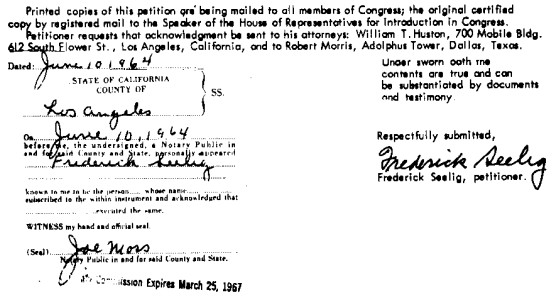 Printed copies of this petition are being mailed to all members of Congress; the original certified
copy by registered mail to the Speaker of the House of Representatives for Introduction in Congress.
Petitioner requests that acknowledgment be sent to his attorneys: William T. Huston, 700 Mobile Bldg.
612 South Flower St., Los Angeles, California, and to Robert Morris, Adolphus Tower, Dallas, Texas.
Dated: June 10, 1964
STATE OF CALIFORNIA
COUNTY OF
SS.
Los Angeles
On June 10, 1964
before me, the undersigned, a Notary Public in
and for said County and State, personally appeared
Frederick Seelig
known to me to be the person whose name
subscribed to the within instrument and acknowledged that
executed the same.
WITNESS my hand and official seal.
(Seal) Joe Moss
Notary Public in and for said County and State.
Commission Expires March 25, 1967
Under sworn oath the
contents are true and can
be substantiated by documents
and testimony.
Respectfully submitted,
Frederick Seelig
Frederick Seelig, petitioner.